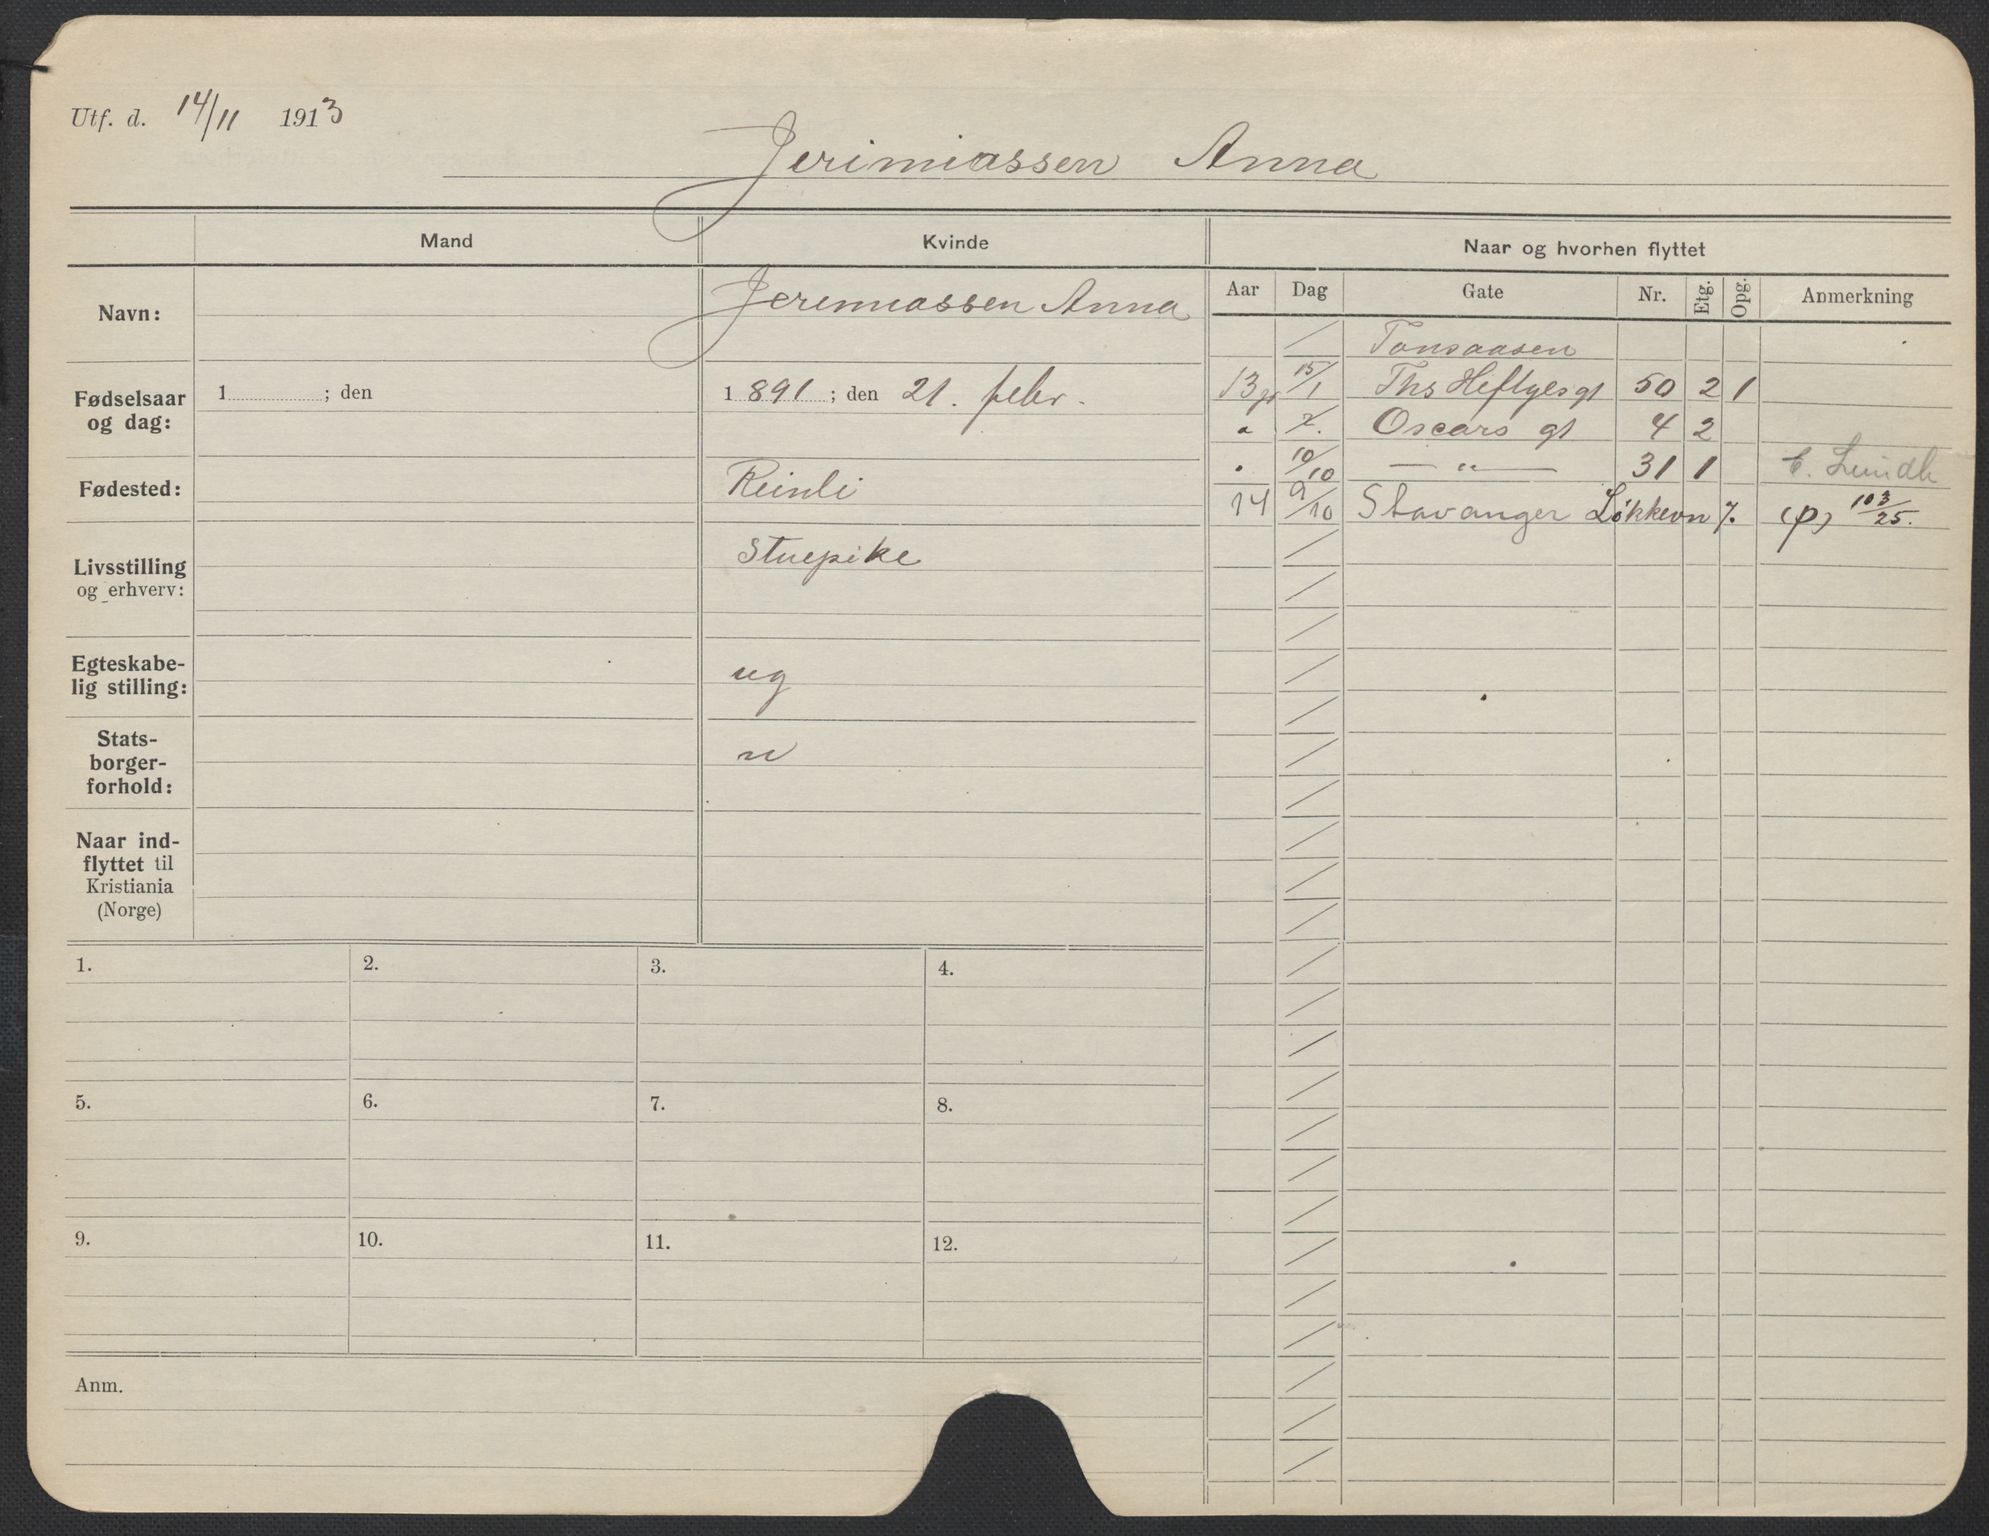 Utf. d. 14/11 1913
Jerimiassen Anna
Mand Kvinde Naar og hvorhen flyttet
Aar Dag Gate Nr. Etg. Opg. Anmerkning
Navn: Jeremiassen Anna
Tonsaasen
Fødselsaar og dag: 1 ; den 1891 ; den 21. febr.
13 15/1 Ths Heftyes gt 50 2 1
" Oscars gt 4 2
Fødested: Reinli
" 10/10 — " — 31 1 C. Lundh
14 9/10 Stavanger Løkkevn 7. (P) 103/25.
Livsstilling og erhverv: Stuepike
Egteskabe-
lig stilling: ug
Stats-
borger-
forhold: n
Naar ind-
flyttet til
Kristiania
(Norge)
1. 2. 3. 4.
5. 6. 7. 8.
9. 10. 11. 12.
Anm.